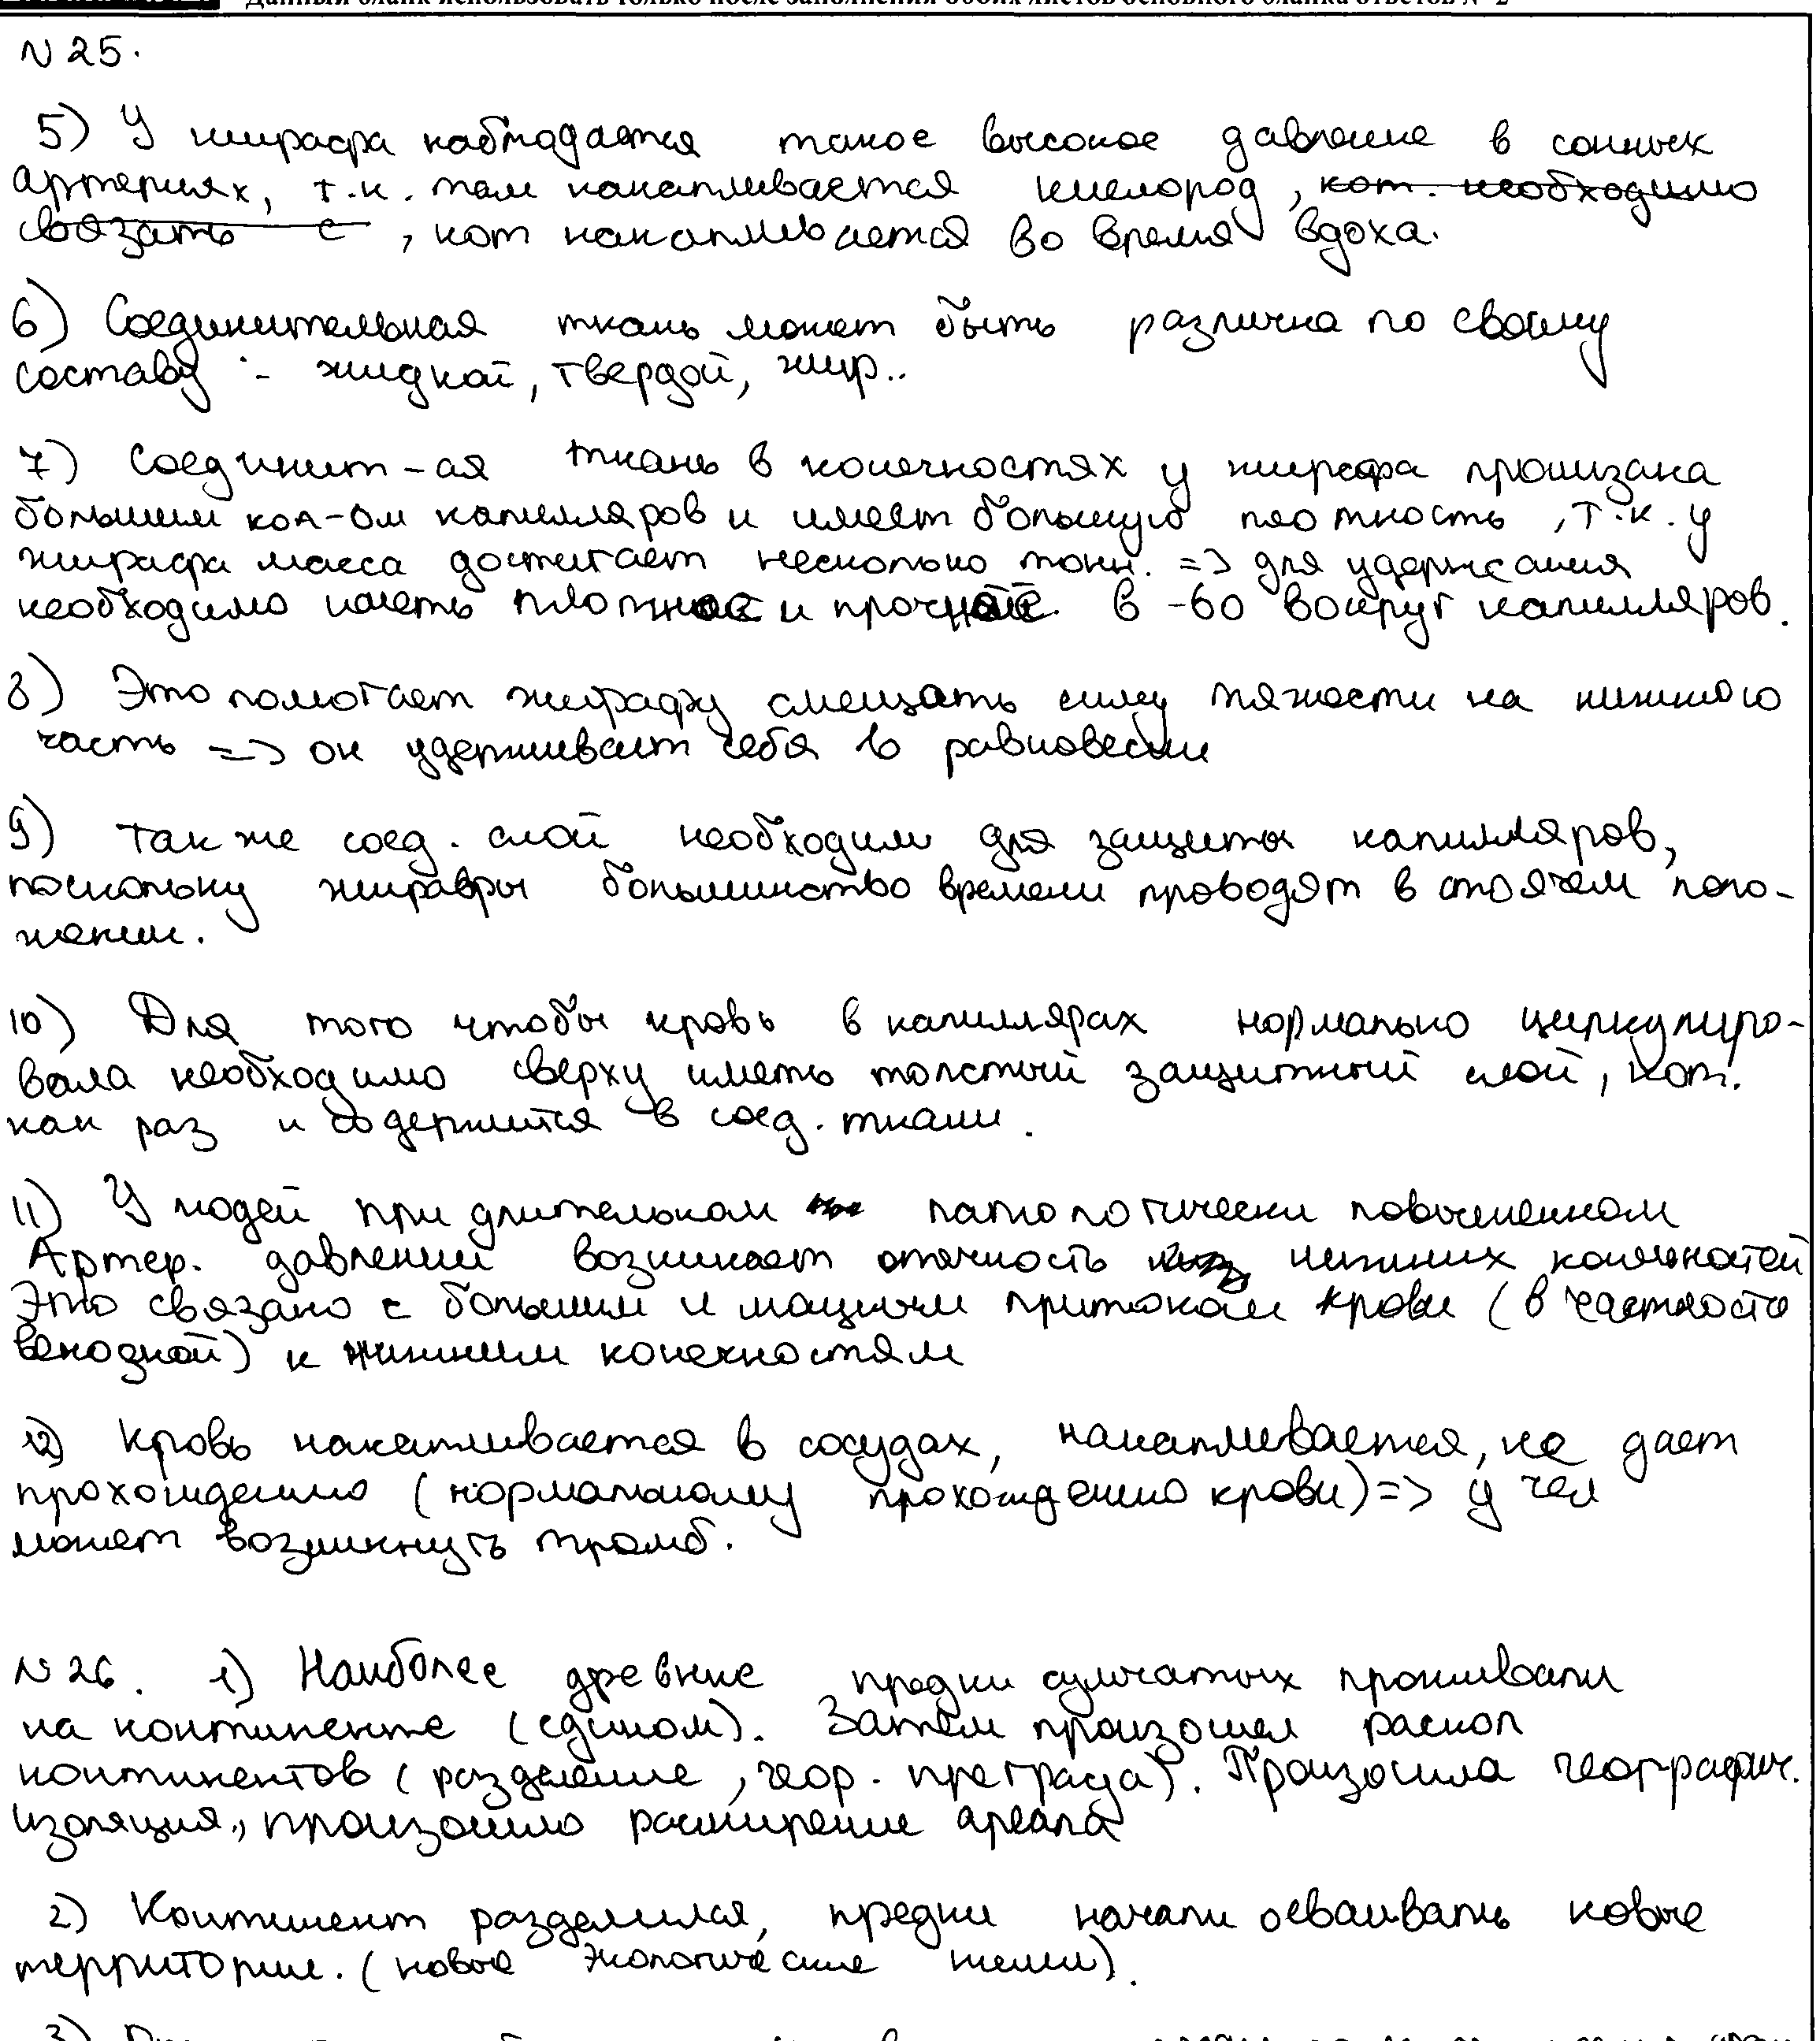 Данный бланк использовать только после заполнения обоих листов основного бланка ответов № 2
N 25.
5) У жирафа наблюдается такое высокое давление в сонных
артериях, т.к. там накапливается кислород, кот. необходимо
связать с , кот накапливается во время вдоха.
6) Соединительная ткань может быть различна по своему
составу - жидкой, твердой, жир..
7) Соединит-ая ткань в конечностях у жирафа пронизана
большим кол-ом капилляров и имеет большую плотность, т.к. у
жирафа масса достигает несколько тонн. => для удержания
необходимо иметь плотное и прочное в-во вокруг капилляров.
8) Это помогает жирафу смещать силу тяжести на нижнюю
часть => он удерживает себя в равновесии
9) Также соед. слой необходим для защиты капилляров,
поскольку жирафы большинство времени проводят в стоячем поло-
жении.
10) Для того чтобы кровь в капиллярах нормально циркулиро-
вала необходимо сверху иметь толстый защитный слой, кот.
как раз и содержится в соед. ткани.
11) У людей при длительном патологически повышенном
Артер. давлении возникает отечность нижних конечностей
Это связано с большим и мощным притоком крови (в частности
венозной) к нижним конечностям
12) Кровь накапливается в сосудах, накапливается, не дает
прохождению (нормальному прохождению крови) => у чел
может возникнуть тромб.
N 26. 1) Наиболее древние предки сумчатых проживали
на континенте (едином). Затем произошел раскол
континентов (разделение, геор. преграда). Произошла географич.
изоляция, произошло расширение ареала
2) Континент разделился, предки начали осваивать новые
территории. (новые экологические ниши).
3)